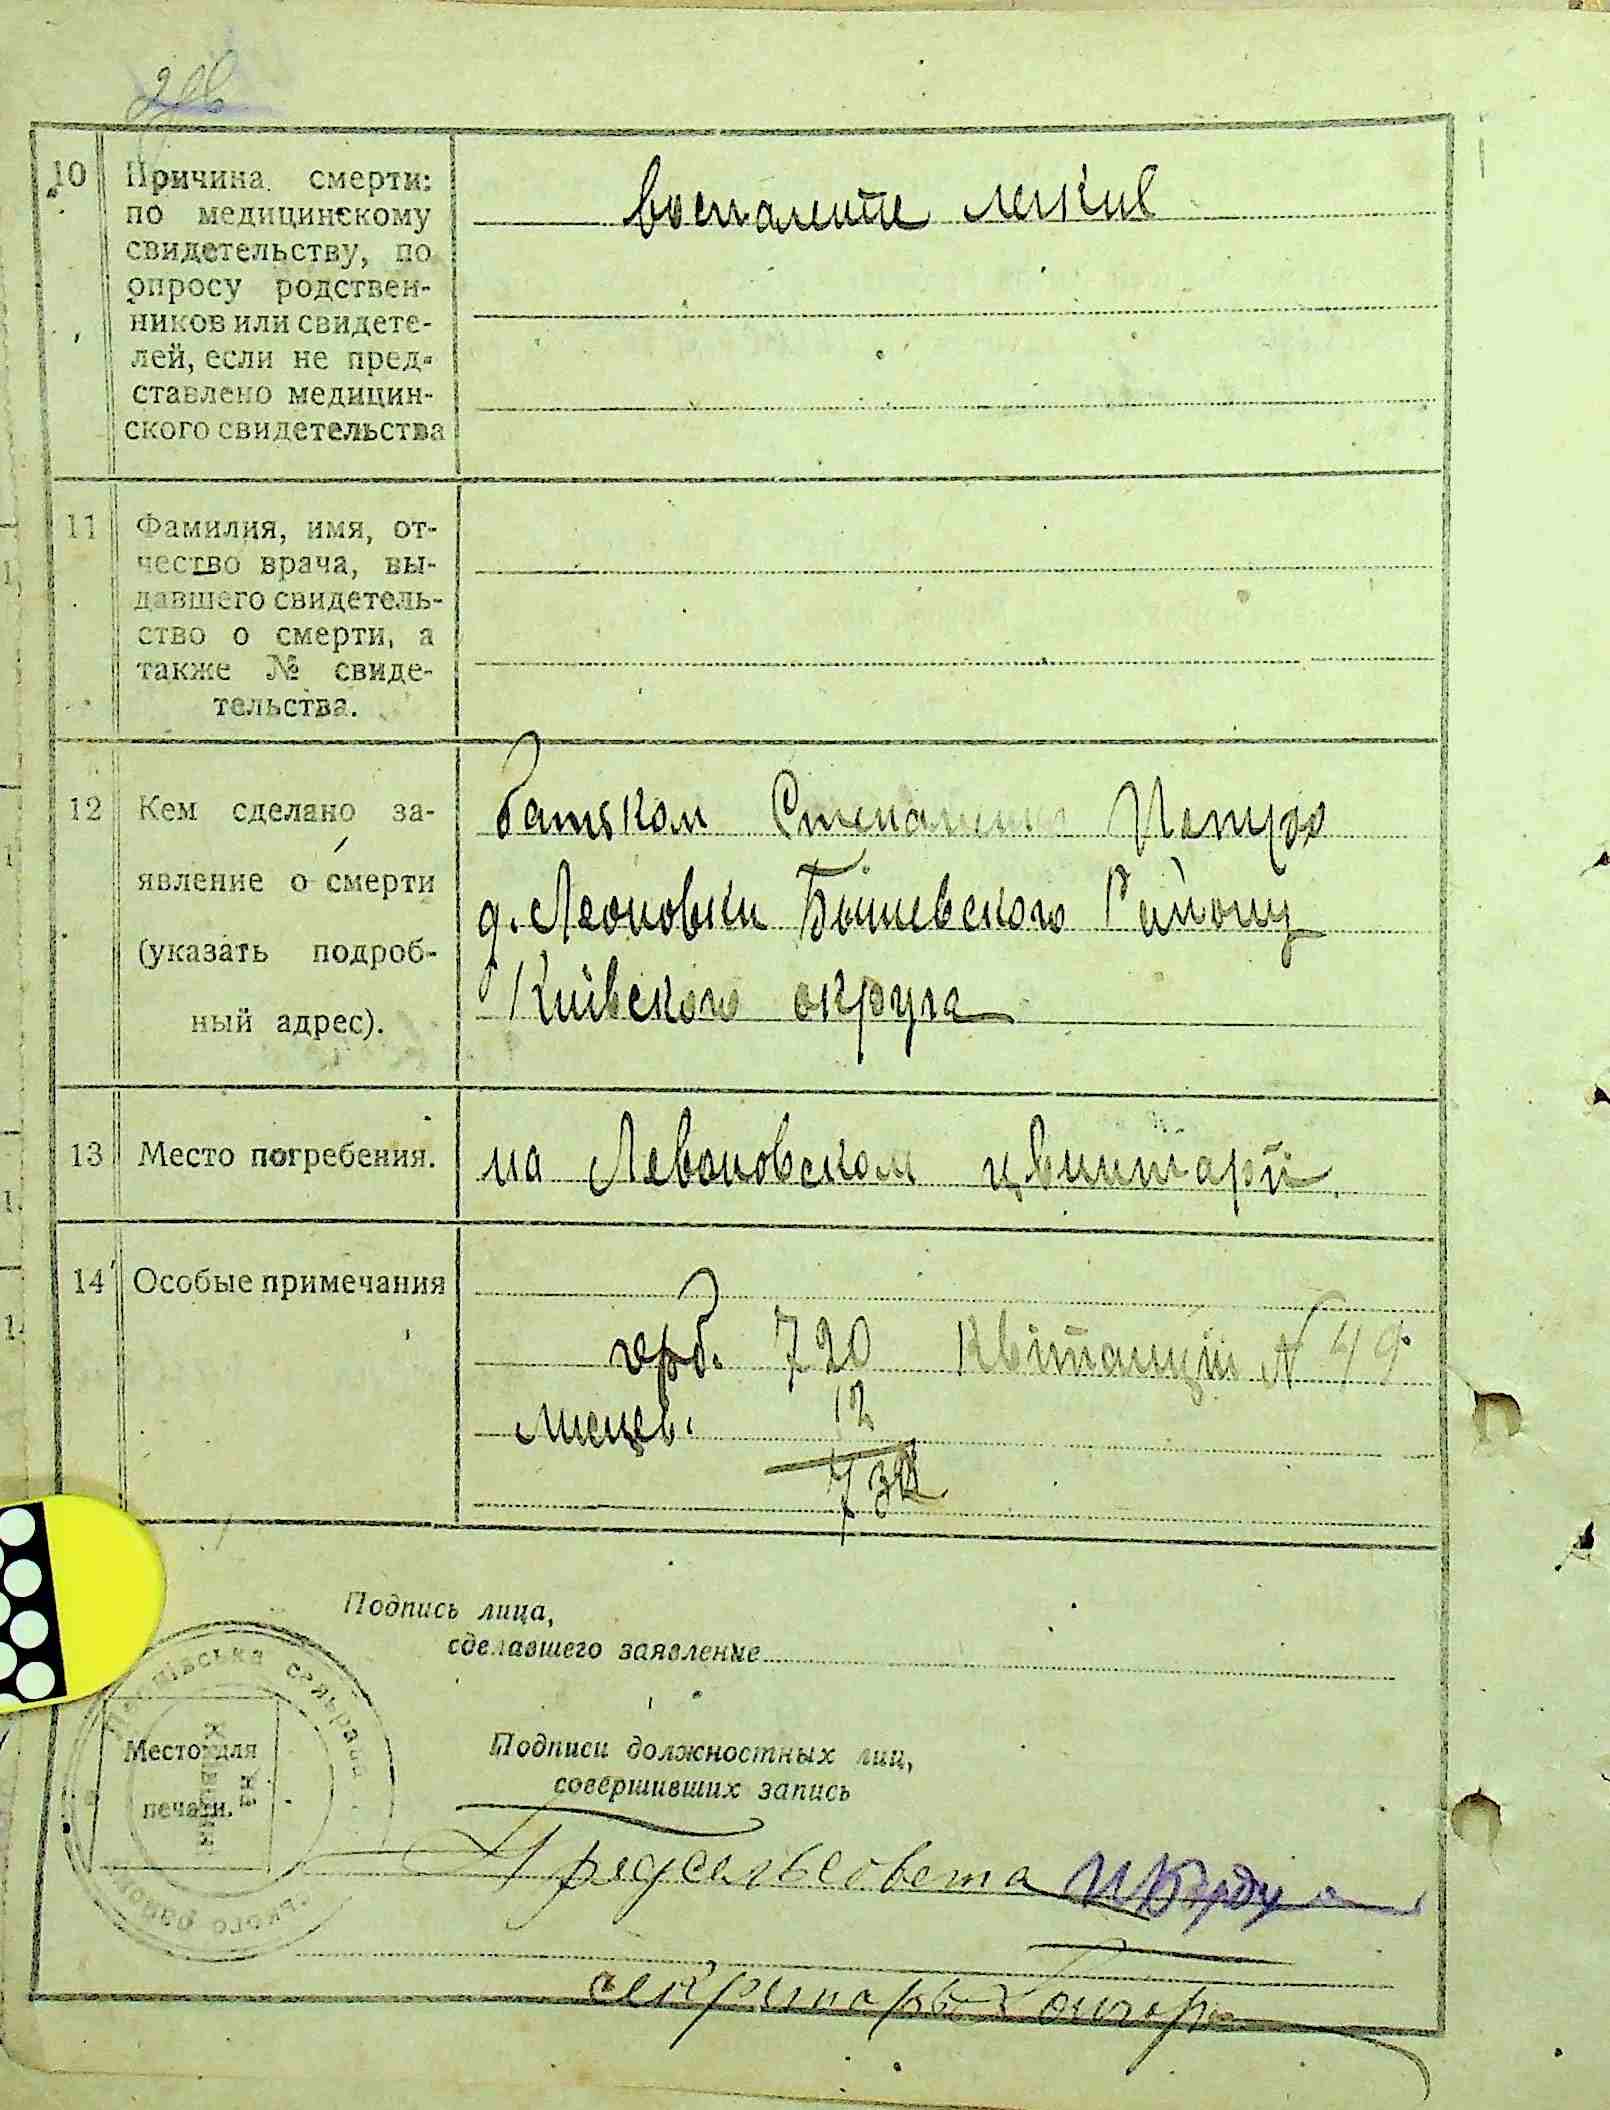 10 Причина смерти:
по медицинскому
свидетельству, по
опросу родствен-
ников или свидете-
лей, если не пред-
ставлено медицин-
ского свидетельства
воспалепие легкив
11 Фамилия, имя, от-
чество врача, вы-
давшего свидетель-
ство о смерти, а
также № свиде-
тельства.
12 Кем сделано за-
явление о смерти
(указать подроб-
ный адрес).
батьком Степаненко Петро
д. Леоновки Бышевского Району
Киівского округа
13 Место погребения.
на Левоновском цвинтарй
14 Особые примечания
герб. 720 Квітанція N 49
месцев. 12
732
Подпись лица,
сделавшего заявление
Место для
печати.
Подписи должностных лиц,
совершивших запись
Предсельсовета
секретарь